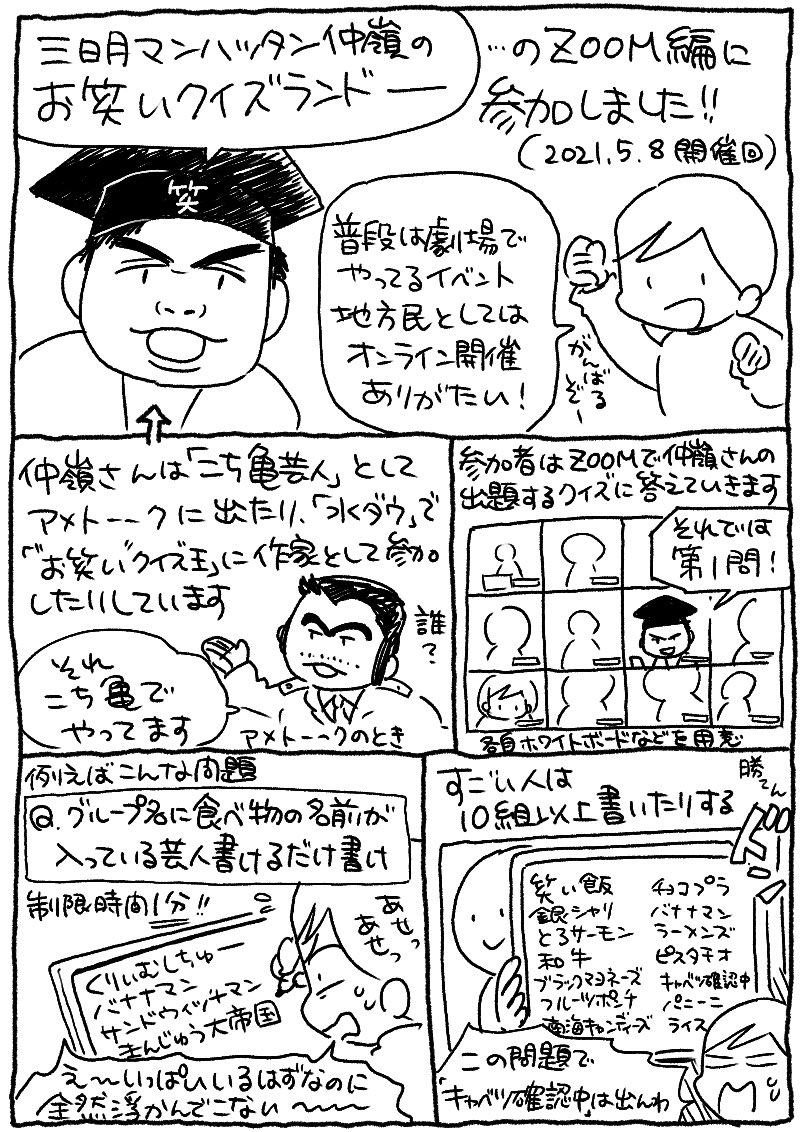 三日月マンハッタン仲嶺の
お笑いクイズランドー
…のZOOM編に
参加しました!!
(2021.5.8開催回)
笑
普段は劇場で
やってるイベント
地方民としては
オンライン開催
ありがたい!
がんばる
ぞー
仲嶺さんは「こち亀芸人」として
アメトーークに出たり、「水ダウ」で
「"お笑い"クイズ王」に作家として参加
したりしています
誰?
それ
こち亀で
やってます
アメトーークのとき
参加者はZOOMで仲嶺さんの
出題するクイズに答えていきます
それでは
第1問!
各自ホワイトボードなどを用意
例えばこんな問題
Q.グループ名に食べ物の名前が
入っている芸人書けるだけ書け
制限時間1分!!
あせっ
あせっ
くりぃむしちゅー
バナナマン
サンドウィッチマン
まんじゅう大帝国
え〜いっぱいいるはずなのに
全然浮かんでこない〜〜〜
すごい人は
10組以上書いたりする
勝てん
笑い飯
銀シャリ
とろサーモン
和牛
ブラックマヨネーズ
フルーツポンチ
南海キャンディーズ
チョコプラ
バナナマン
ラーメンズ
ピスタチオ
キャベツ確認中
パニーニ
ライス
この問題で
キャベツ確認中は出んわ